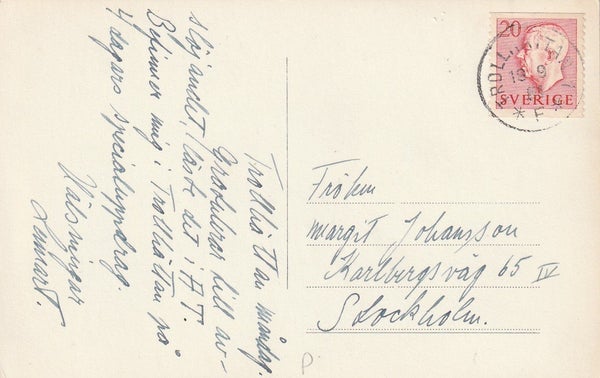 Trollhättan måndag.
Gratulerar till av-
slöjandet, läste det i A T.
Befinner mig i Trollhättan på
4 dagars specialuppdrag.
Hälsningar
Lennart.
20
SVERIGE
TROLLHÄTTAN
19 9
* F *
Fröken
Margit Johansson
Karlbergsväg 65 IV
Stockholm.
P.